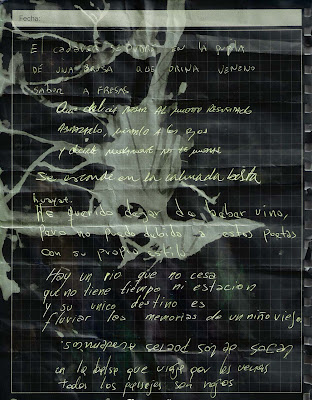 Fecha:
E cadaver se pudre en la pupila
DE UNA BRUJA QUE ORINA VENENO
SABOR A FRESAS
Que delicia AL muerto RESUCITADO
ABRAZARLO, mirarlo a los ojos
Y decirle NO TE
Se esconde en la calmada bestia
He querido dejar de beber vino,
Pero no puedo debido a estos poetas
con su propio estilo
Hay un rio que no cesa
que no tiene tiempo ni estacion
y su unico destino es
fluviar las memorias de un niño viejo.
de los poetas
en la balsa que viaja por las venas
todos los pasajes son rojos